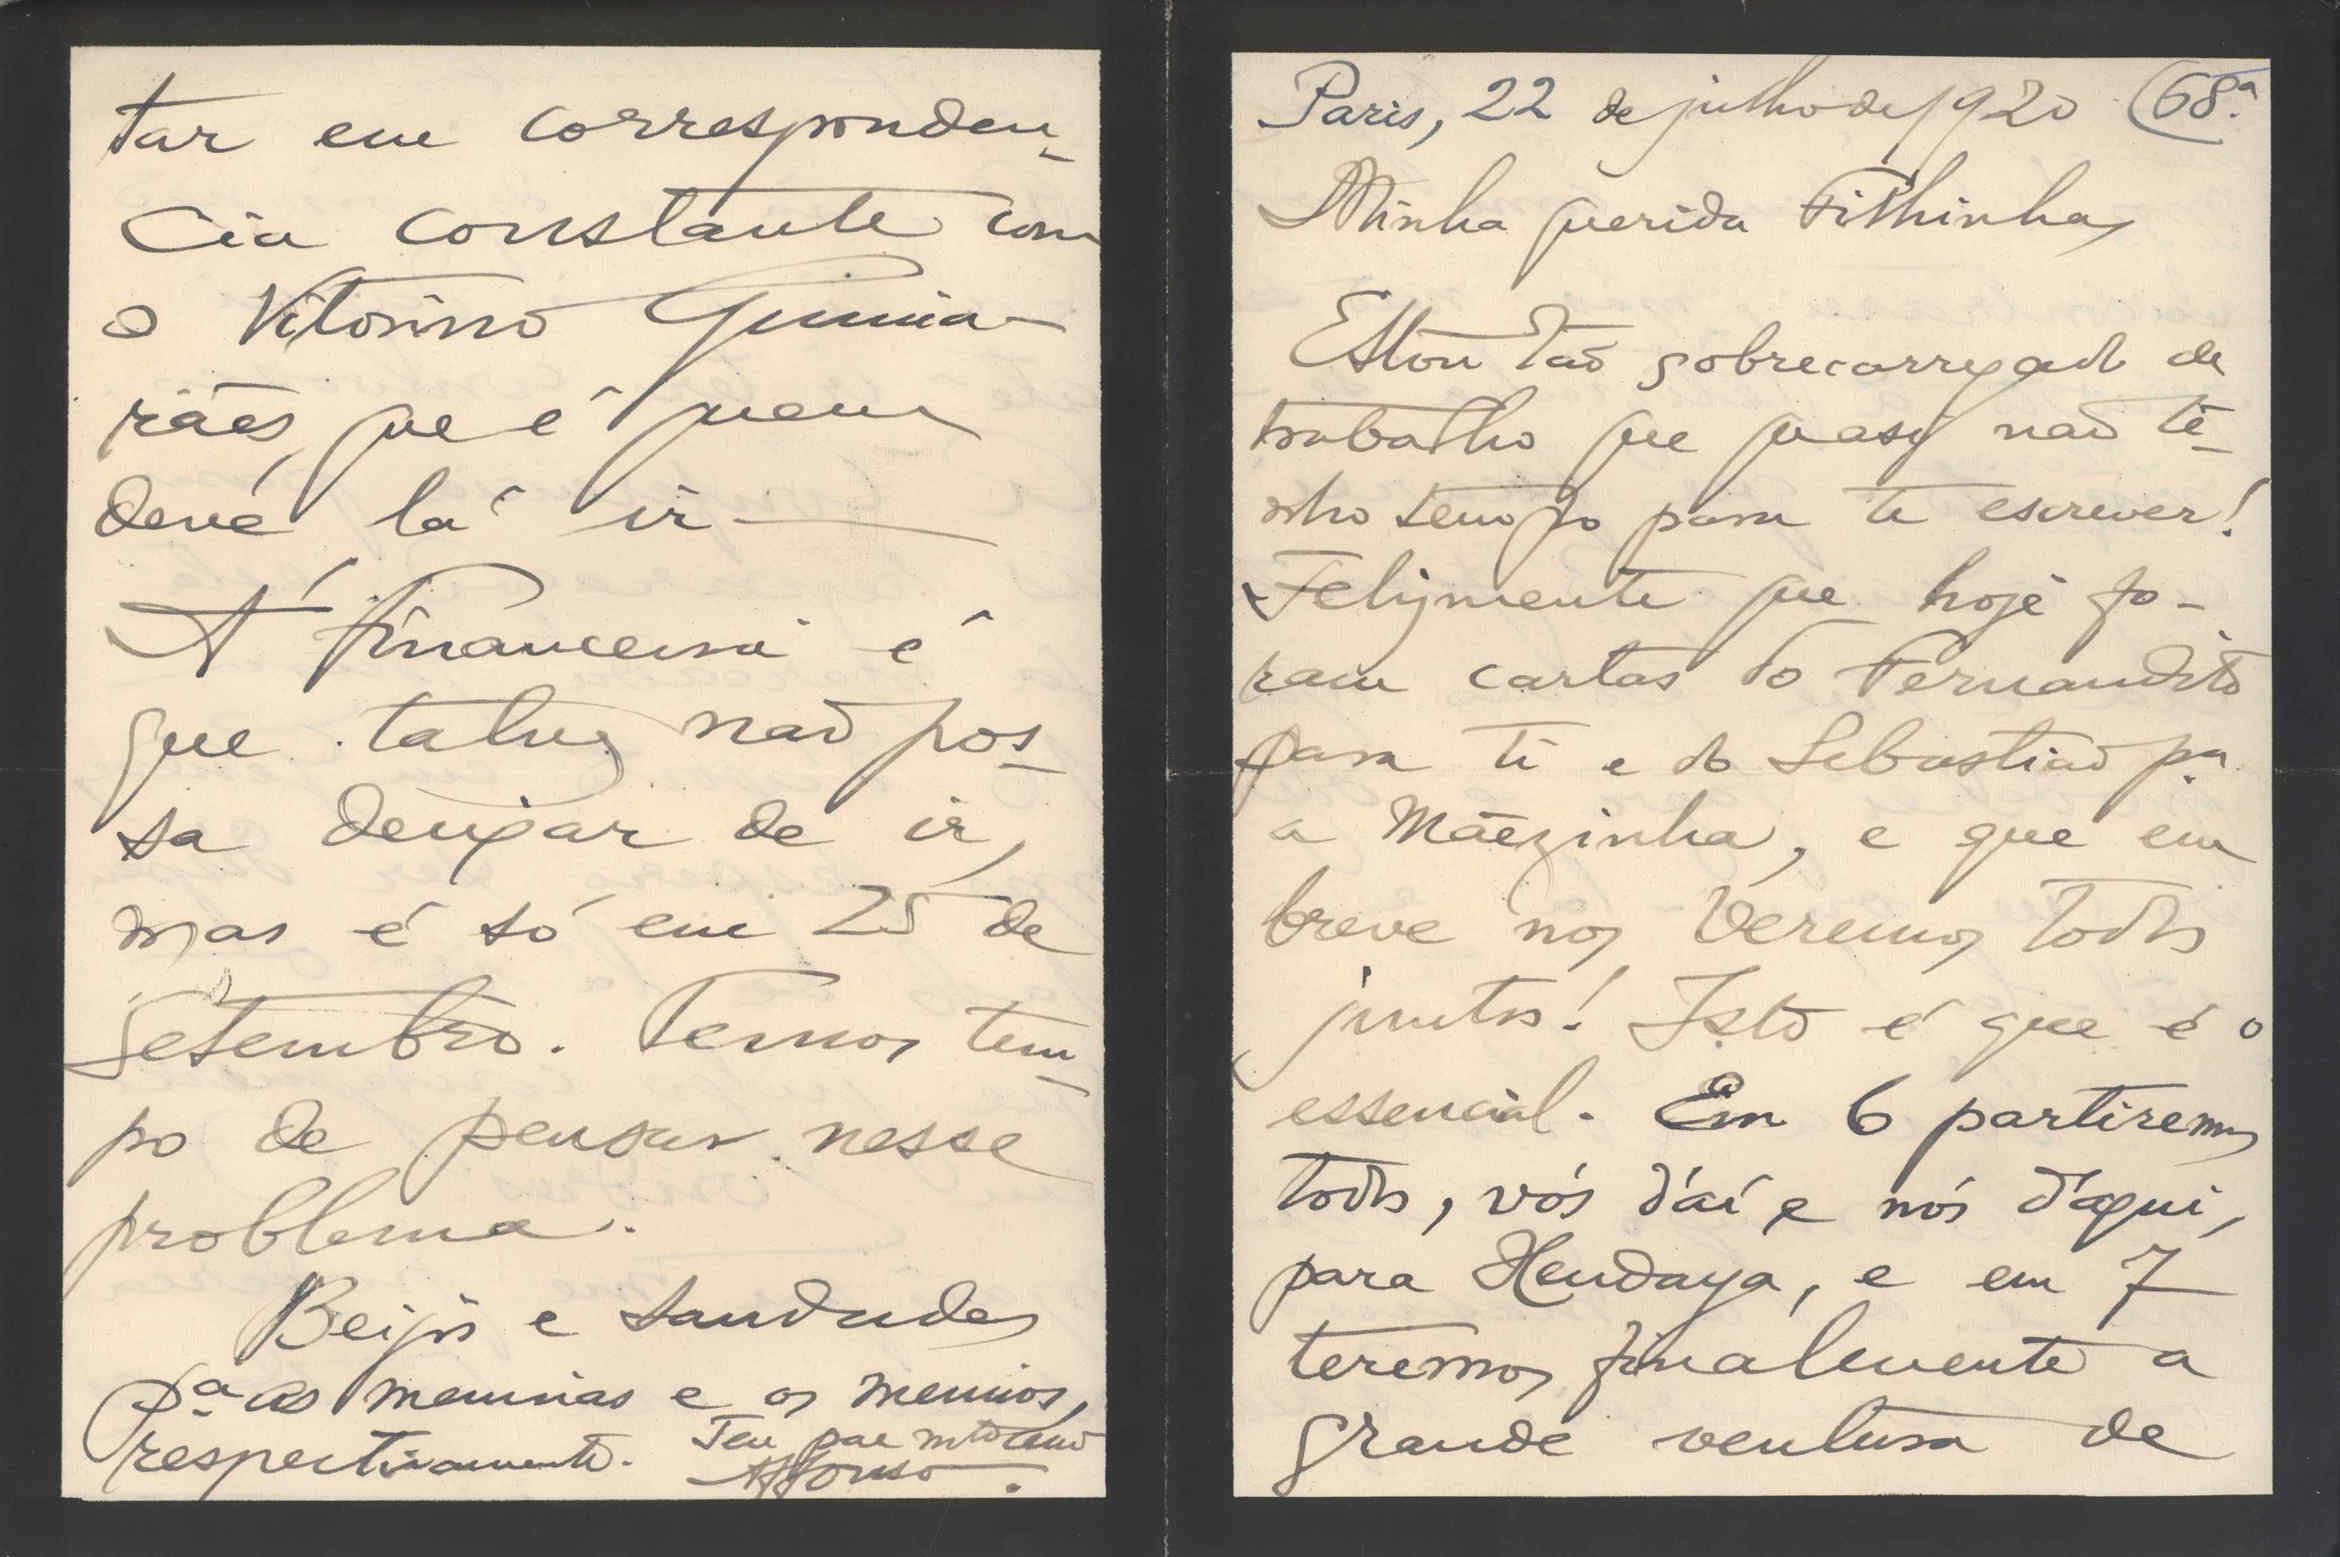 Paris, 22 de julho de 1920 (68.ª
Minha querida Filhinha,
Estou tão sobrecarregado de
trabalho que quasi não te-
nho tempo para te escrever!
Felizmente que hoje fo-
ram cartas do Fernandito
para ti e do Sebastião p.ª
a Mãezinha, e que em
breve nos veremos todos
juntos! Isto é que é o
essencial. Em 6 partiremos
todos, vós d'aí e nós d'aqui,
para Hendaya, e em 7
teremos finalmente a
grande ventura de
tar em corresponden-
cia constante com
o Vitorino Guima-
rães, que é quem
deve lá ir
A financeira é
que talvez não pos-
sa deixar de ir,
mas é só em 25 de
Setembro. Temos tem-
po de pensar nesse
problema.
Beijos e saudades
p.ª as meninas e os meninos,
respectivamente. Teu pae mto amo
Affonso.